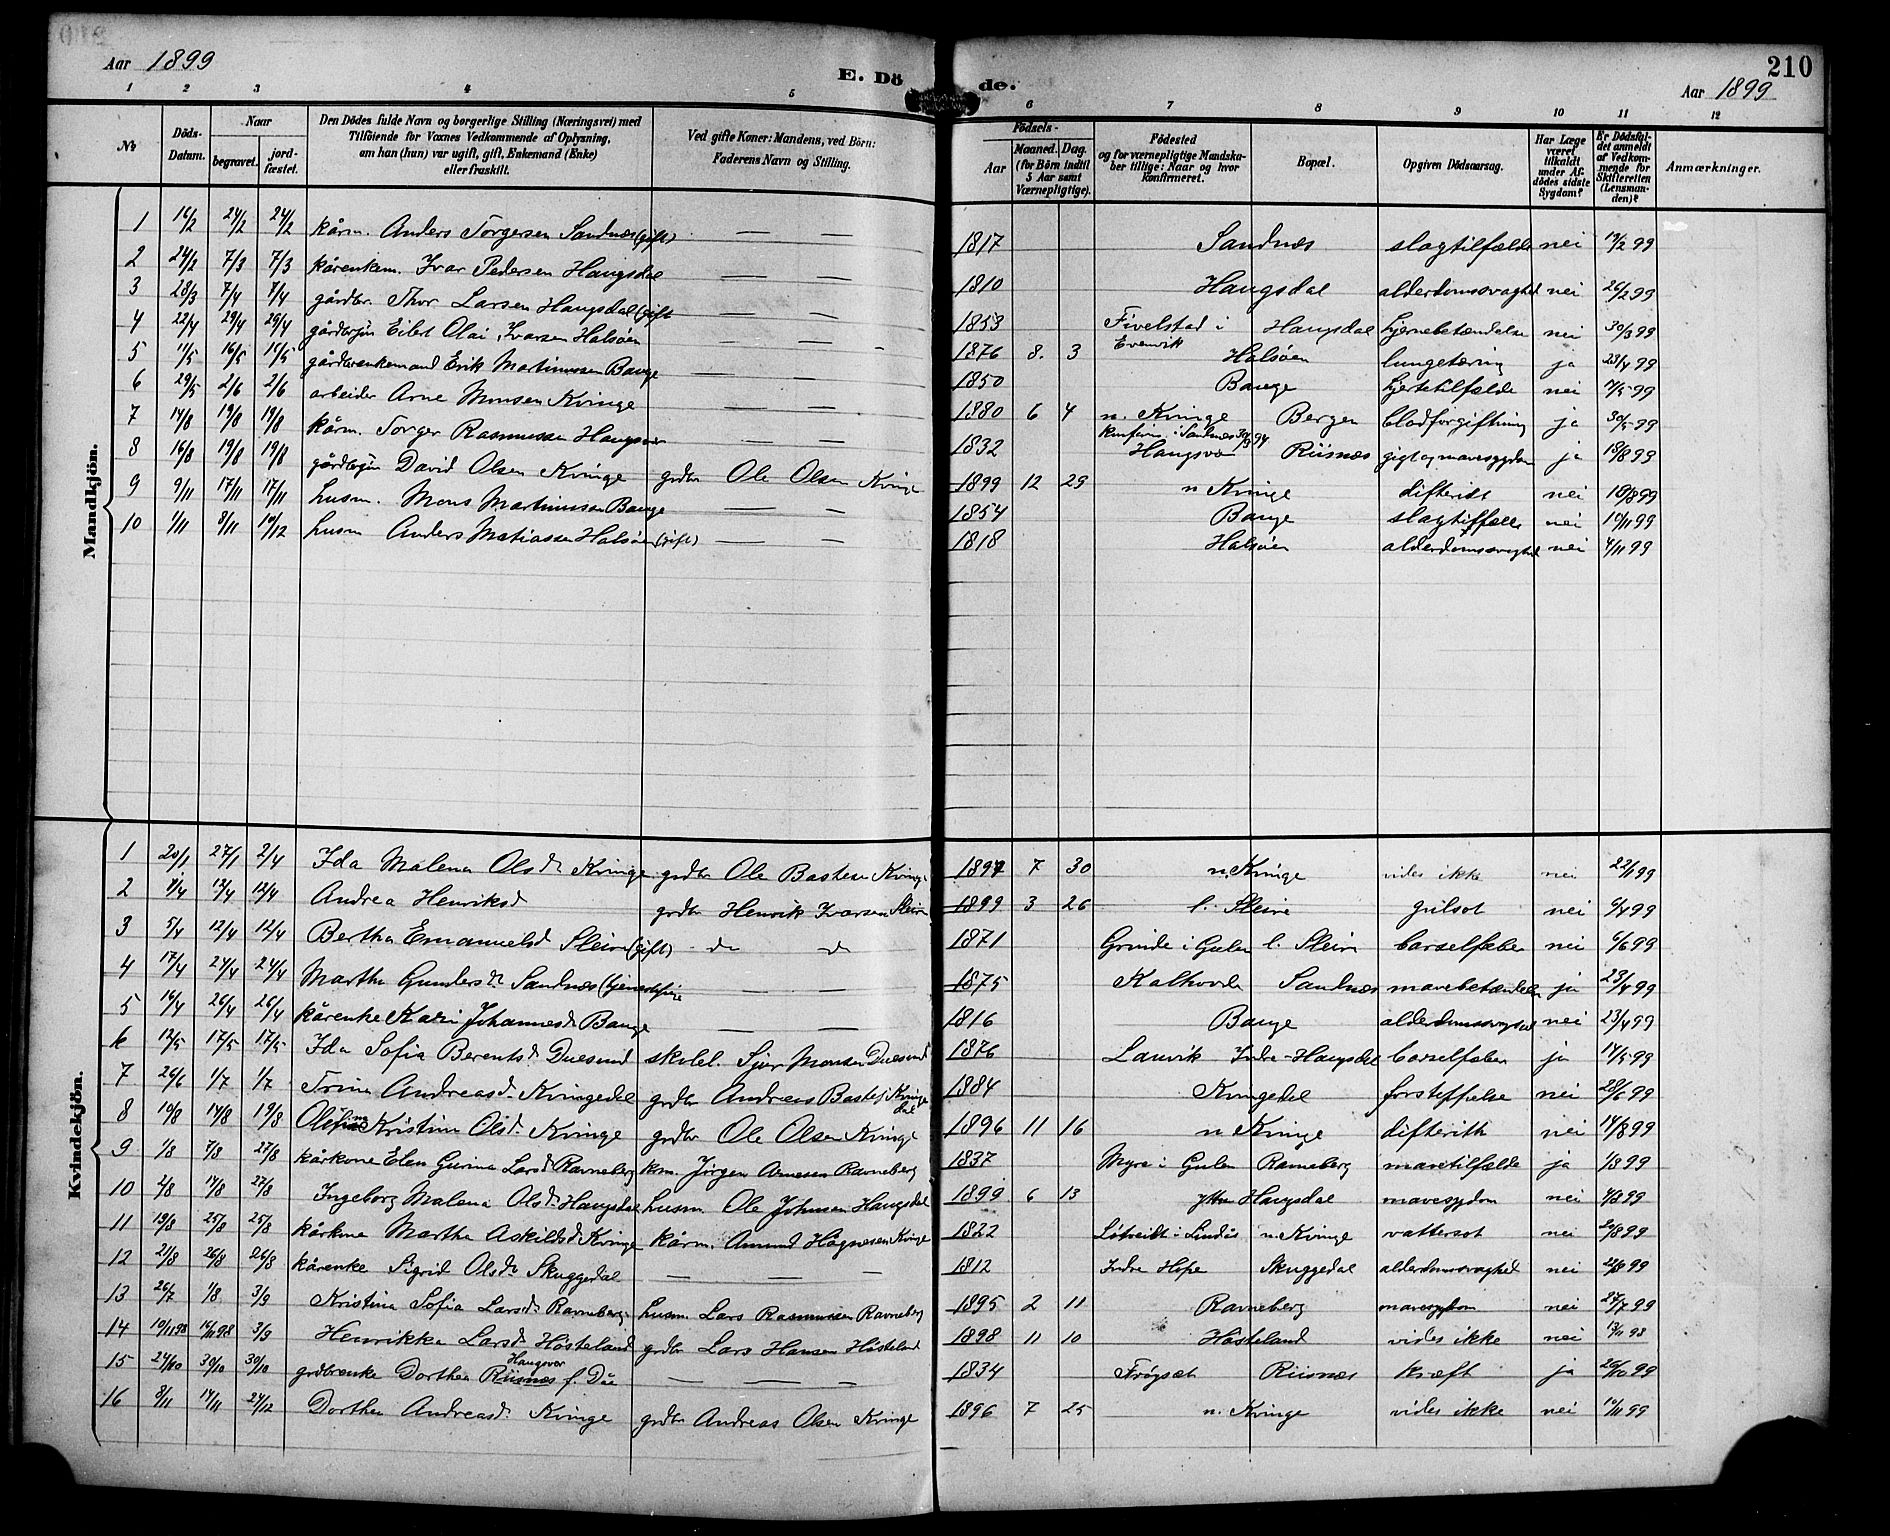 Aar 1899
E. Döde.
210
Aar 1899
1 2 3 4 5 6 7 8 9 10 11 12
No
Döds-Datum.
Naar
begravet.
jordfæstet.
Den Dödes fulde Navn og borgerlige Stilling (Næringsvei) med
Tilföiende for Voxnes Vedkommende af Oplysning,
om han (hun) var ugift, gift, Enkemand (Enke)
eller fraskilt.
Ved gifte Koner: Mandens, ved Börn:
Faderens Navn og Stilling.
Födsels-
Aar
Maaned. Dag.
(for Börn indtil
5 Aar samt
Værnepligtige).
Födested
og for værnepligtige Mandskaber tillige: Naar og hvor
konfirmeret.
Bopæl.
Opgiven Dödsaarsag.
Har Læge
været
tilkaldt
under Afdödes sidste
Sygdom?
Er Dödsfaldet anmeldt
af Vedkommende for
Skifteretten
(Lensmanden)?
Anmærkninger.
Mandkjön.
1 16/2 24/2 24/2 kårm. Anders Torgersen Sandnæs (gift) — — 1817 Sandnæs slagtilfælde nei 19/2 99
2 24/2 7/3 7/3 kårenkem. Ivar Pedersen Haugsdal — — 1810 Haugsdal alderdomssvaghed nei 26/2 99
3 28/3 7/4 7/4 gårdbr. Thor Larsen Haugsdal (gift — — 1853 Fivelstad i Evenvik Haugsdal hjernebetændelse nei 30/3 99
4 22/4 29/4 29/4 gårdbrsøn Eilert Olai Ivarsen Halsöen 1876 8. 3 Halsøen lungetæring ja 23/4 99
5 11/5 16/5 16/5 gårdbrenkemand Erik Martinussen Bauge — — 1850 Bauge hjertetilfælde nei 7/5 99
6 29/5 2/6 2/6 arbeider Arne Monsen Kvinge — — 1880 6 4 n. Kvinge konfirm. i Sandnæs 94 Bergen blodforgiftning ja 30/5 99
7 14/8 19/8 19/8 kårm. Torger Rasmussen Haugsvær — — 1832 Haugsvær Riisnæs gigt og mavesygdom ja 18/8 99
8 16/8 19/8 19/8 gårdbrsøn David Olsen Kvinge grdbr Ole Olsen Kvinge 1899 12 29 n Kvinge difterit nei 18/8 99
9 9/11 17/11 17/11 husm. Mons Martinussen Bauge — — 1854 Bauge slagtilfælle nei 10/11 99
10 1/11 8/11 10/12 husm Anders Matiassen Halsöen (gift) — — 1818 Halsöen alderdomssvaghed nei 4/11 99
Kvindekjön.
1 20/1 27/1 2/4 Ida Malena Olsdr Kvinge grdbr Ole Bastesen Kvinge 1897 7 30 n. Kvinge vides ikke nei 22/1 99
2 1/4 12/4 12/4 Andrea Henriksd grdbr Henrik Ivarsen Sleire 1899 3 26 l. Sleire gulsot nei 6/4 99
3 5/4 12/4 12/4 Bertha Emanuelsd Sleire (gift) do do 1871 Grinde i Gulen l. Sleire barselfeber nei 6/6 99
4 17/4 24/4 24/4 Martha Gundersdr Sandnæs (tjenestepige — — 1875 Kalhovde Sandnæs mavebetændelse ja 23/4 99
5 16/4 26/4 26/4 kårenke Kari Johannesdr Bauge — — 1816 Bauge alderdomssvaghed nei 23/4 99
6 12/5 17/5 17/5 Ida Sofia Berentsdr Duesund skolel. Sjur Monsen Duesund 1876 Lauvik Indre-Haugsdal barselfeber ja 14/5 99
7 26/6 1/7 1/7 Trine Andreasdr Kvingedal grdbr Andreas Bastes. Kvingedal 1884 Kvingedal forstoppelse nei 28/6 99
8 10/8 14/8 19/8 Olefine Kristine Olsdr Kvinge grdbr Ole Olsen Kvinge 1896 11 16 n Kvinge difterith nei 14/8 99
9 1/8 7/8 27/8 kårkone Elen Gurine Larsd Ravneberg krm. Jørgen Arnesen Ravneberg 1837 Myre i Gulen Ravneberg mavetilfælde ja 1/8 99
10 2/8 14/8 27/8 Ingeborg Malena Olsdr Haugsdal husm. Ole Johnsen Haugsdal 1899 6 13 Ytre Haugsdal mavesygdom nei 4/8 99
11 19/8 25/8 25/8 kårkone Martha Askildsdr Kvinge kårm. Amund Hågnesen Kvinge 1822 Løtveidt i Lindås n. Kvinge vattersot nei 20/8 99
12 21/8 26/8 26/8 kårenke Sigrid Olsdr Skuggedal — — — 1812 Indre Hope Skuggedal alderdomssvaghed nei 22/8 99
13 26/7 1/8 3/9 Kristine Sofia Larsdr Ravneberg husm. Lars Rasmussen Ravneberg 1895 2 11 Ravneberg mavesygdom nei 27/7 99
14 10/11 98 16/11 98 3/9 Henrikka Larsdr Hösteland grdbr Lars Hansen Hösteland 1898 11 10 Hösteland vides ikke nei 13/11 98
15 24/10 30/10 30/10 grdbrenke Dorthea Haugsvær Riisnæs f. Due — — — 1834 Frøyset Riisnæs kræft ja 26/10 99
16 8/11 14/11 24/12 Dorthea Andreasdr Kvinge grdbr Andreas Olsen Kvinge 1896 7 25 n. Kvinge vides ikke nei 10/11 99